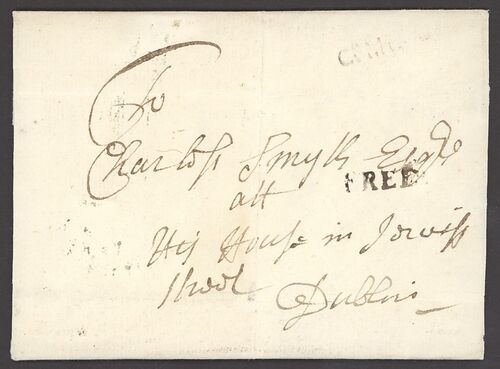 To
Charless Smyth Esqre
FREE
att
His House in Jerviss
street
Dublin